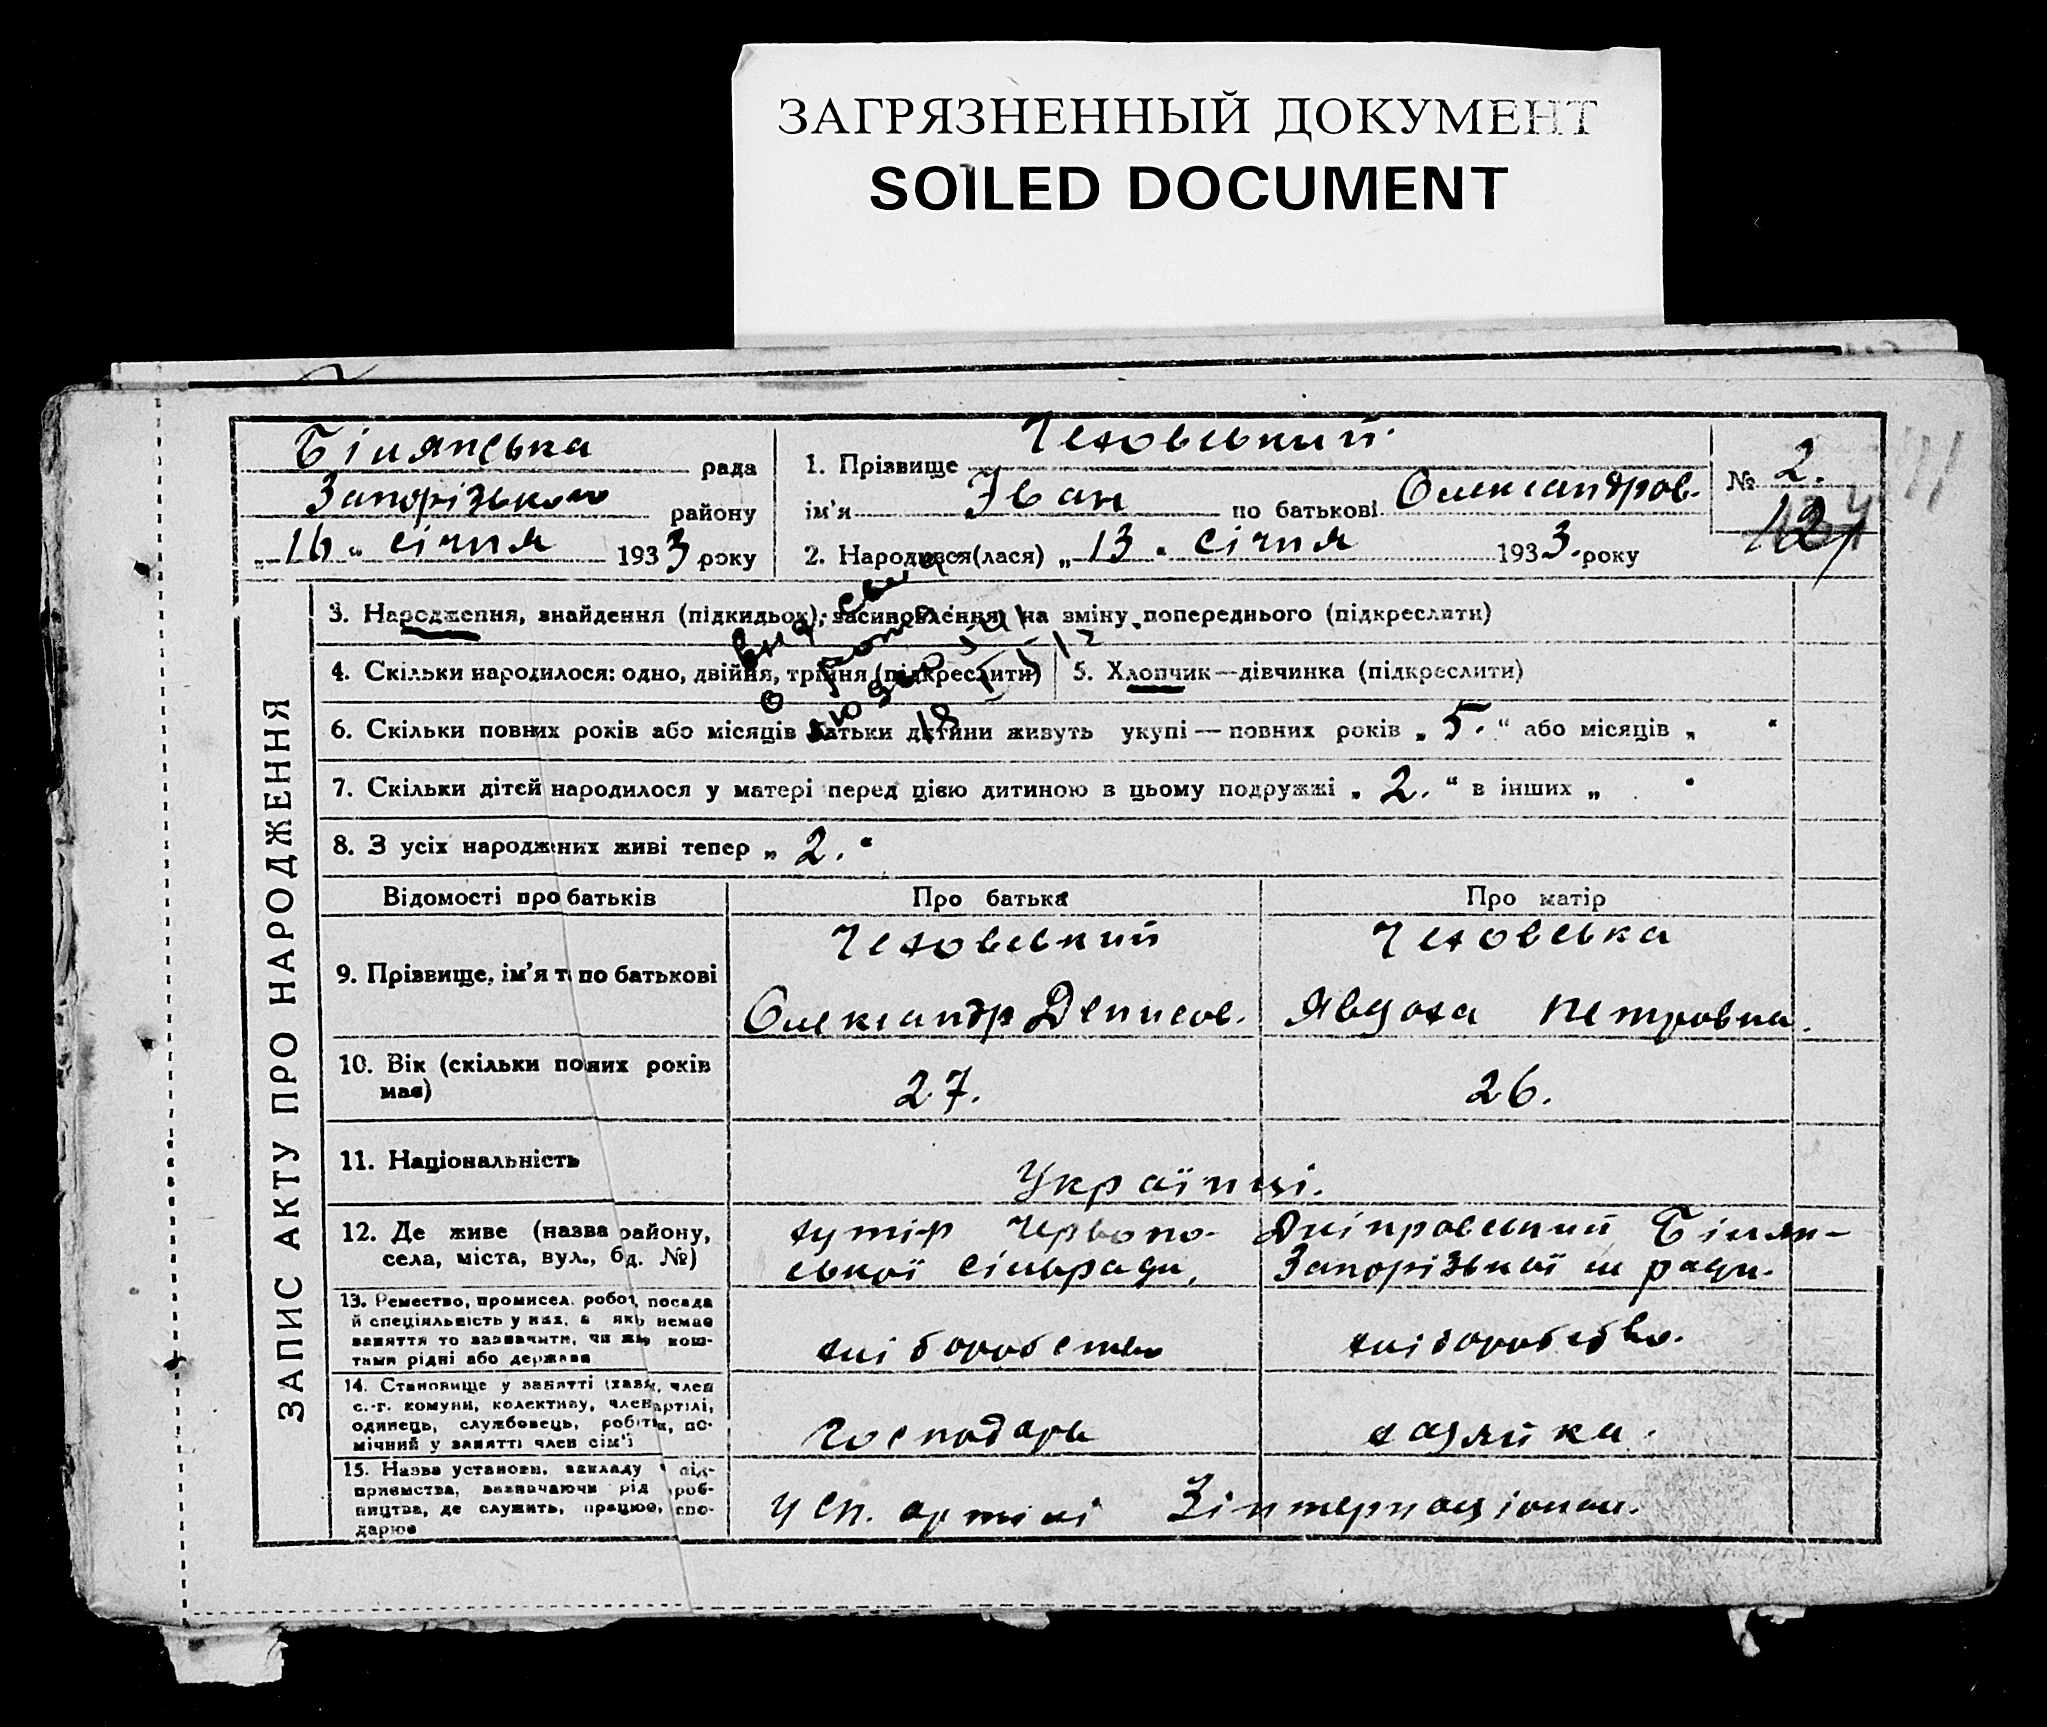 ЗАГРЯЗНЕННЫЙ ДОКУМЕНТ
SOILED DOCUMENT
Білянська рада
Запорізького району
„16“ січня 1933 року
1. Прізвище Чеховський
ім'я Іван по батькові Олександров.
2. Народився(лася) „13“ січня 1933. року
№ 2.
ЗАПИС АКТУ ПРО НАРОДЖЕННЯ
3. Народження, знайдення (підкидьок), засиновлення, на зміну попереднього (підкреслити)
4. Скільки народилося: одно, двійня, трійня (підкреслити)
5. Хлопчик—дівчинка (підкреслити)
6. Скільки повних років або місяців батьки дитини живуть укупі — повних років „5.“ або місяців „ “
7. Скільки дітей народилося у матері перед цією дитиною в цьому подружжі „2.“ в інших „ “
8. З усіх народжених живі тепер „2.“
Відомості про батьків Про батька Про матір
9. Прізвище, ім'я т по батькові
Чеховський Чеховська
Олександр Денисов. Явдоха Петровна.
10. Вік (скільки повних років має)
27. 26.
11. Національність
Українці.
12. Де живе (назва району,
села, міста, вул., буд. №)
хутір Червоно- Дніпровський Білян-
ської сільради, Запорізької м ради.
13. Ремество, промисел, робот, посада
й спеціяльність у них, а як немає
заняття то зазначити, чи жив кош-
тами рідні або держави
хліборобство хліборобство.
14. Становище у занятті (хазяїн, член
с.-г. комуни, колективу, член артілі,
одинець, службовець, робітник, по-
мічний у занятті член сім'ї
Господарь хазяйка.
15. Назва установи, закладу під-
приємства, зазначаючи рід вироб-
ництва, де служить, працює, госпо-
дарює
у сп. артілі Зінтернаціонал.